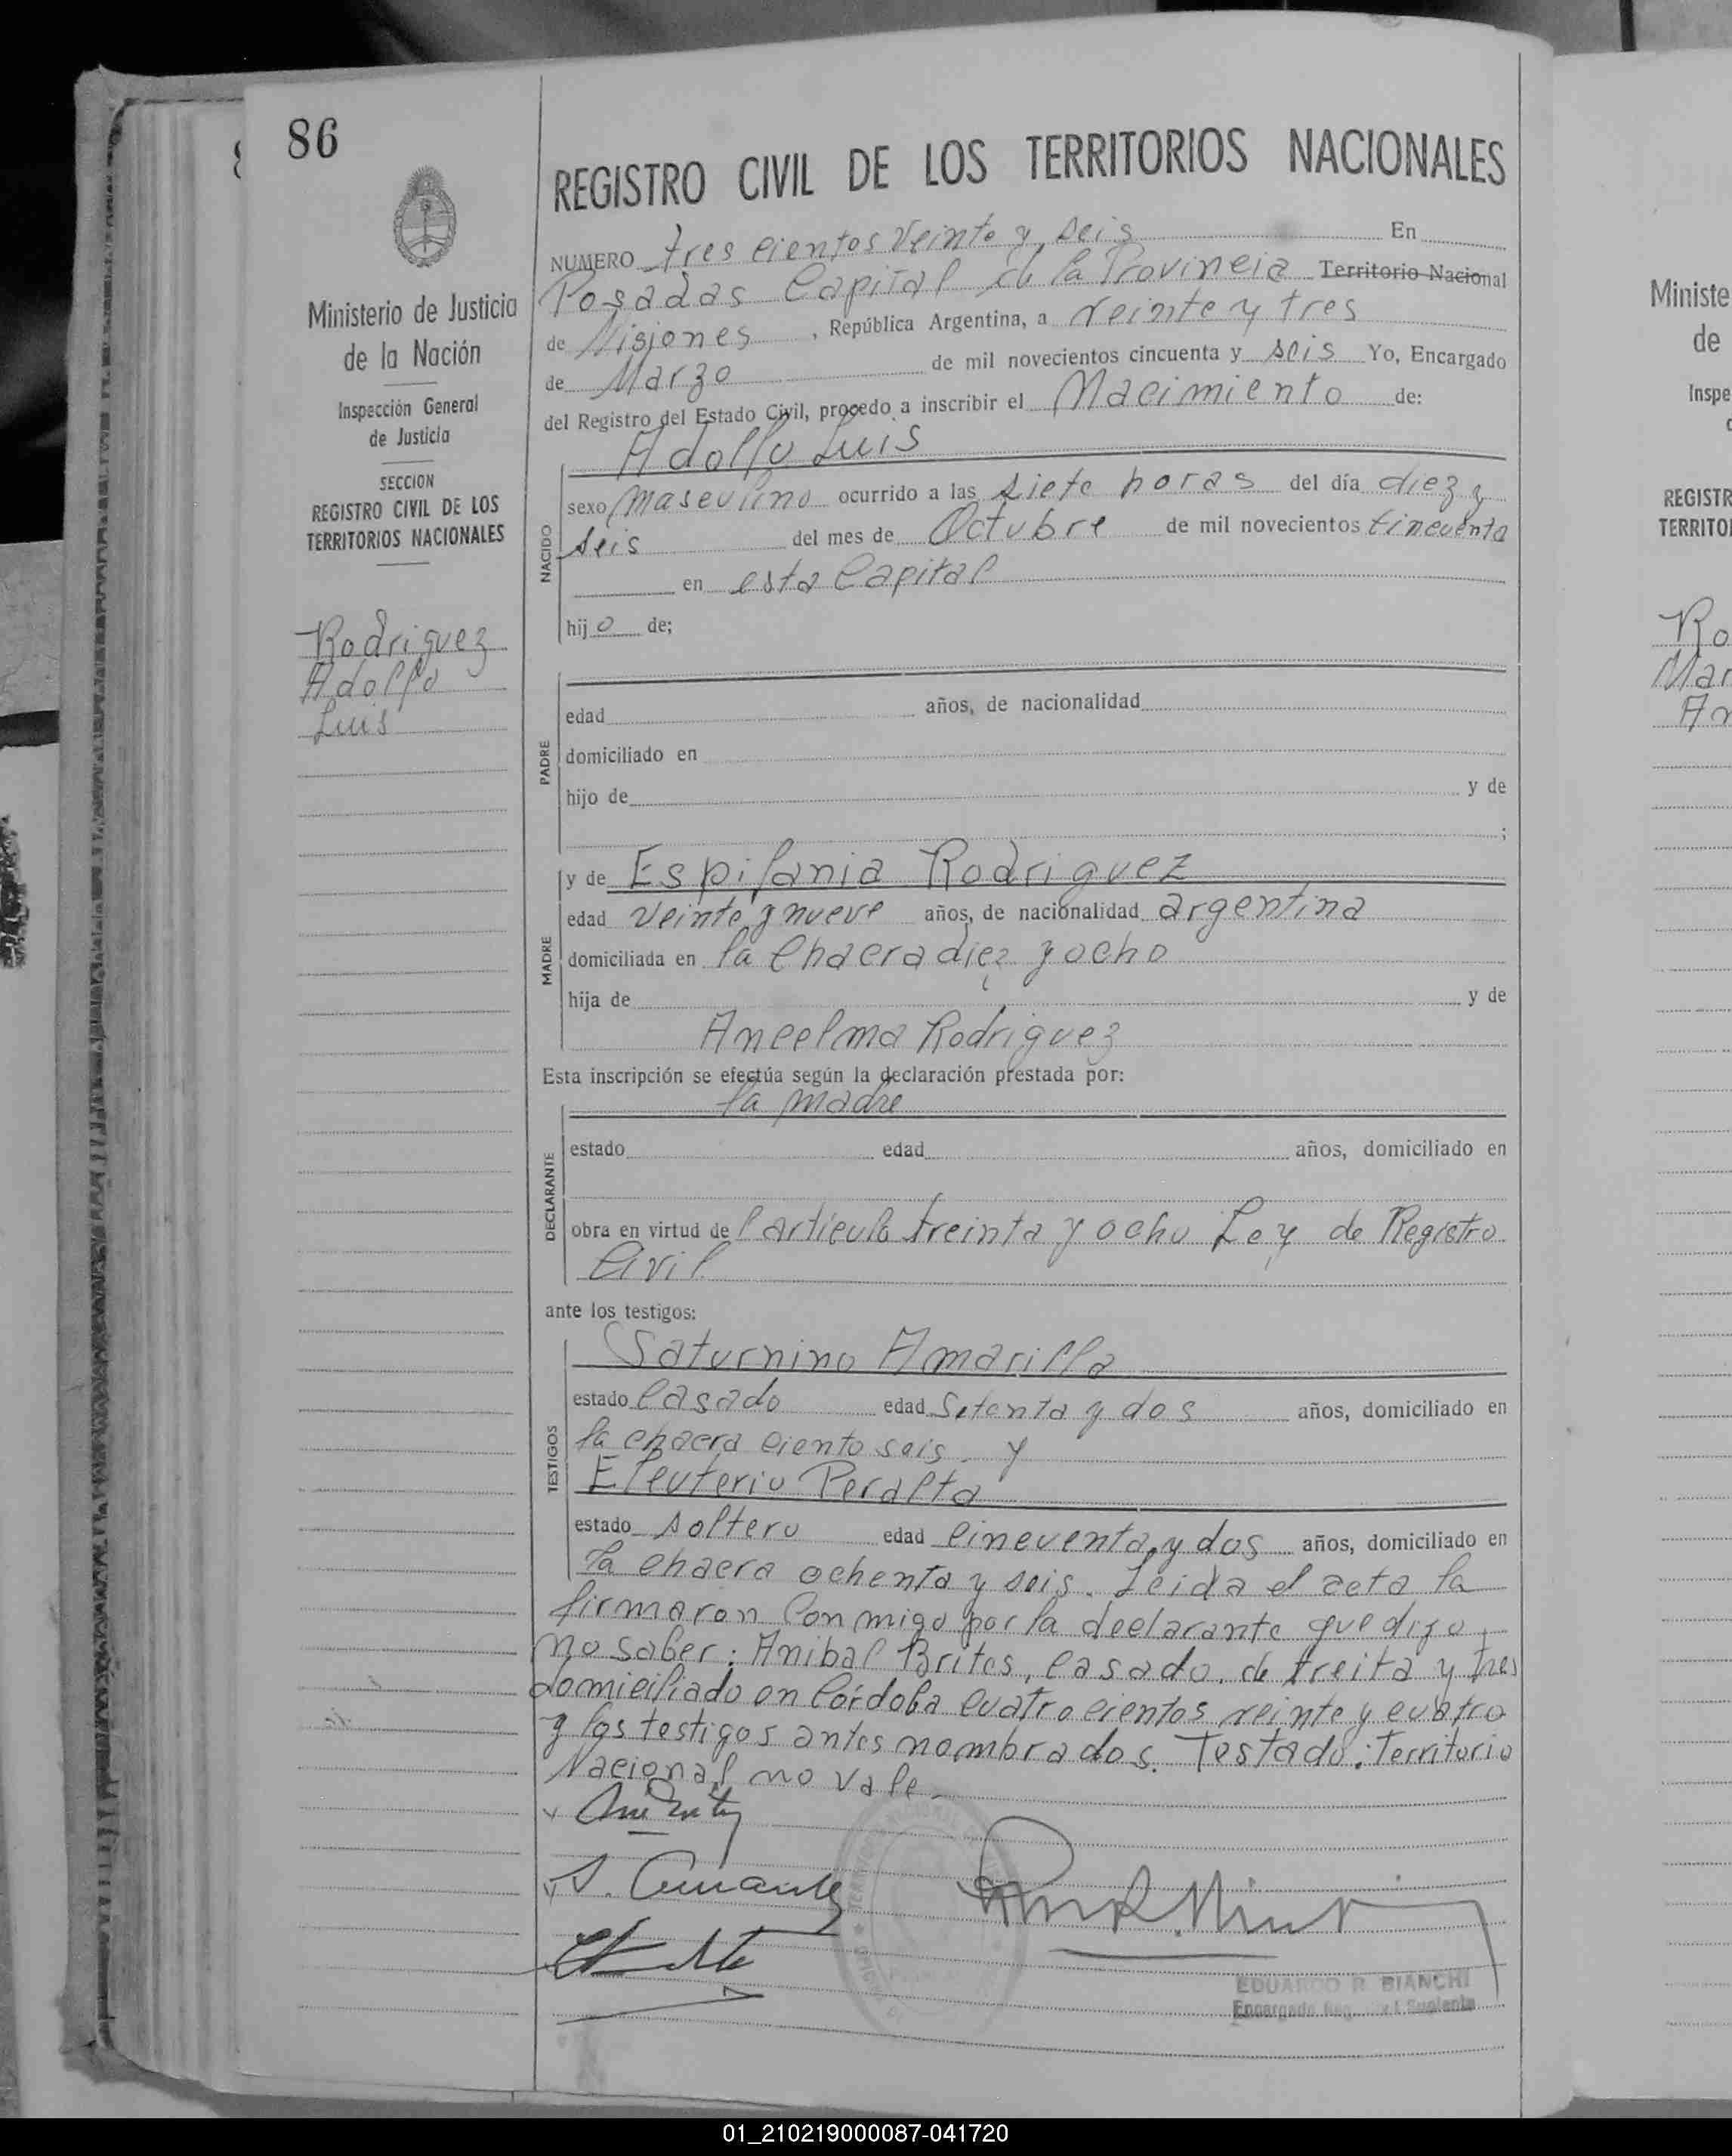 86
Ministerio de Justicia
de la Nación
Inspección General
de Justicia
SECCION
REGISTRO CIVIL DE LOS
TERRITORIOS NACIONALES
Rodriguez
Adolfo
Luis
REGISTRO CIVIL DE LOS TERRITORIOS NACIONALES
NUMERO trescientos veinte y seis En
Posadas Capital de la Provincia Territorio Nacional
de Misiones, República Argentina, a veinte y tres
de Marzo de mil novecientos cincuenta y seis Yo, Encargado
del Registro del Estado Civil, procedo a inscribir el Nacimiento de:
Adolfo Luis
NACIDO
sexo masculino ocurrido a las siete horas del día diez y
seis del mes de Octubre de mil novecientos cincuenta
en esta Capital
hijo de;
PADRE
edad años, de nacionalidad
domiciliado en
hijo de y de
;
MADRE
y de Espifania Rodriguez
edad veinte y nueve años, de nacionalidad argentina
domiciliada en la Chacra diez y ocho
hija de y de
Ancelma Rodriguez
Esta inscripción se efectúa según la declaración prestada por:
la madre
DECLARANTE
estado edad años, domiciliado en
obra en virtud de l articulo treinta y ocho Ley de Registro
Civil
ante los testigos:
TESTIGOS
Saturnino Amarilla
estado Casado edad Setenta y dos años, domiciliado en
la chacra ciento seis. y
Eleuterio Peralta
estado soltero edad cincuenta y dos años, domiciliado en
la chacra ochenta y seis. Leida el acta la
firmaron Conmigo por la declarante que dijo
no saber: Anibal Brites, casado, de treita y tres
domiciliado en Córdoba cuatrocientos veinte y cuatro
y los testigos antes nombrados. Testado: Territorio
Nacional no vale.
EDUARDO R. BIANCHI
Encargado Reg. Civil Suplente
Ministe
de
Inspe
REGISTR
TERRITOI
Ro
Mar
An
01_210219000087-041720